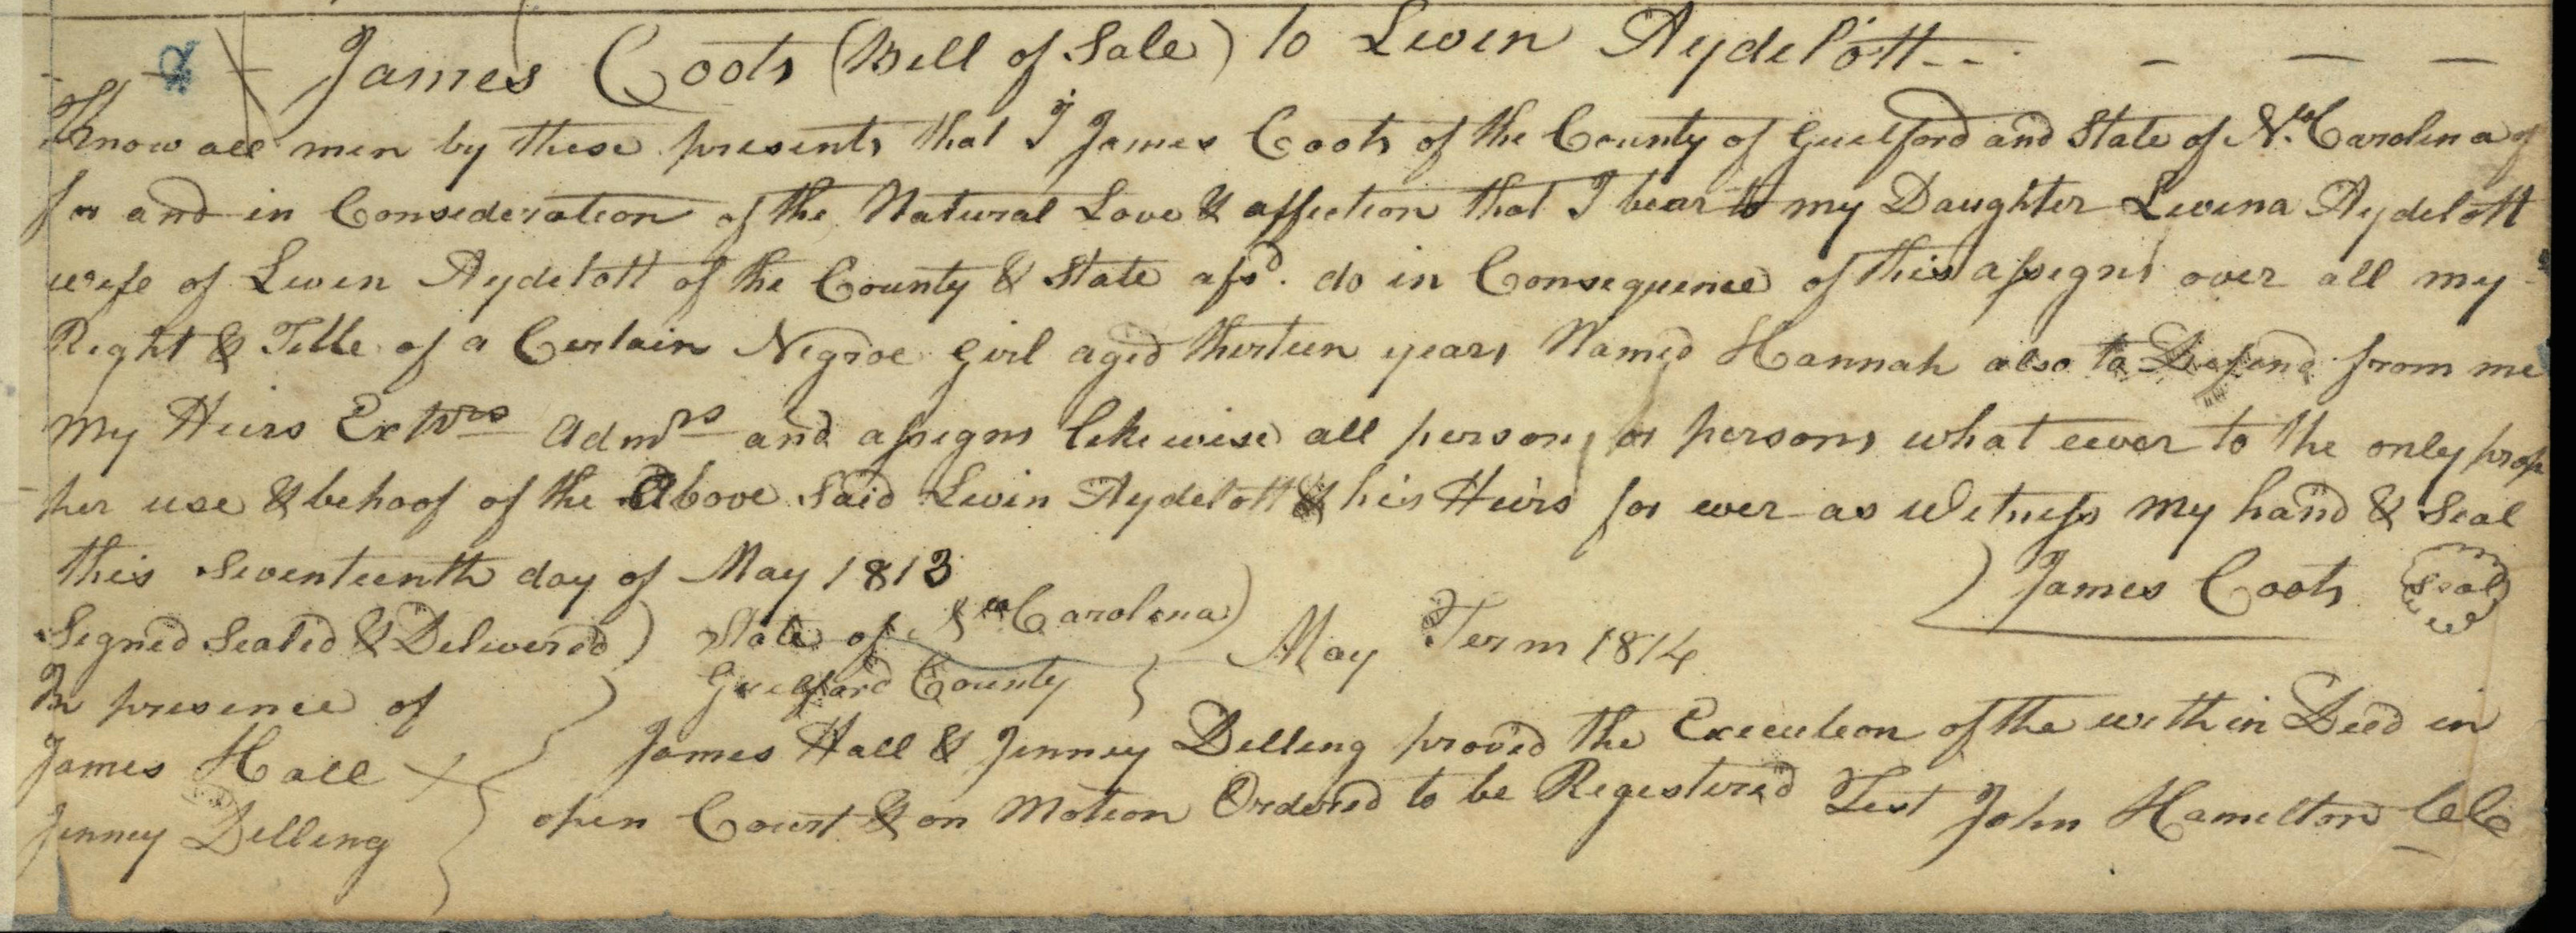 James Coots (Bill of Sale) to Levin Aydelott
Know all men by these presents that I James Coots of the County of Guilford and State of No. Carolina of
for and in Consideration of the Natural Love & affection that I bear to my Daughter Levina Aydelott
wife of Levin Aydelott of the County & State afsd. do in Consequence of this assigns over all my
Right & Title of a Certain Negroe Girl aged thirteen years Named Hannah also to Defend from me
My Heirs Extrs Admrs and assigns likewise all persons or persons what ever to the only prop
per use & behoof of the Above said Levin Aydelott & his Heirs for ever as Witness my hand & Seal
this Seventeenth day of May 1813
James Coots Seal
Signed Sealed & Delivered
In presence of
James Hall
Jenney Dilling
State of No Carolina
Guilford County
May Term 1814
James Hall & Jenney Dilling proved the Execution of the within Deed in
open Court & on Motion Ordered to be Registered Test John Hamilton CC